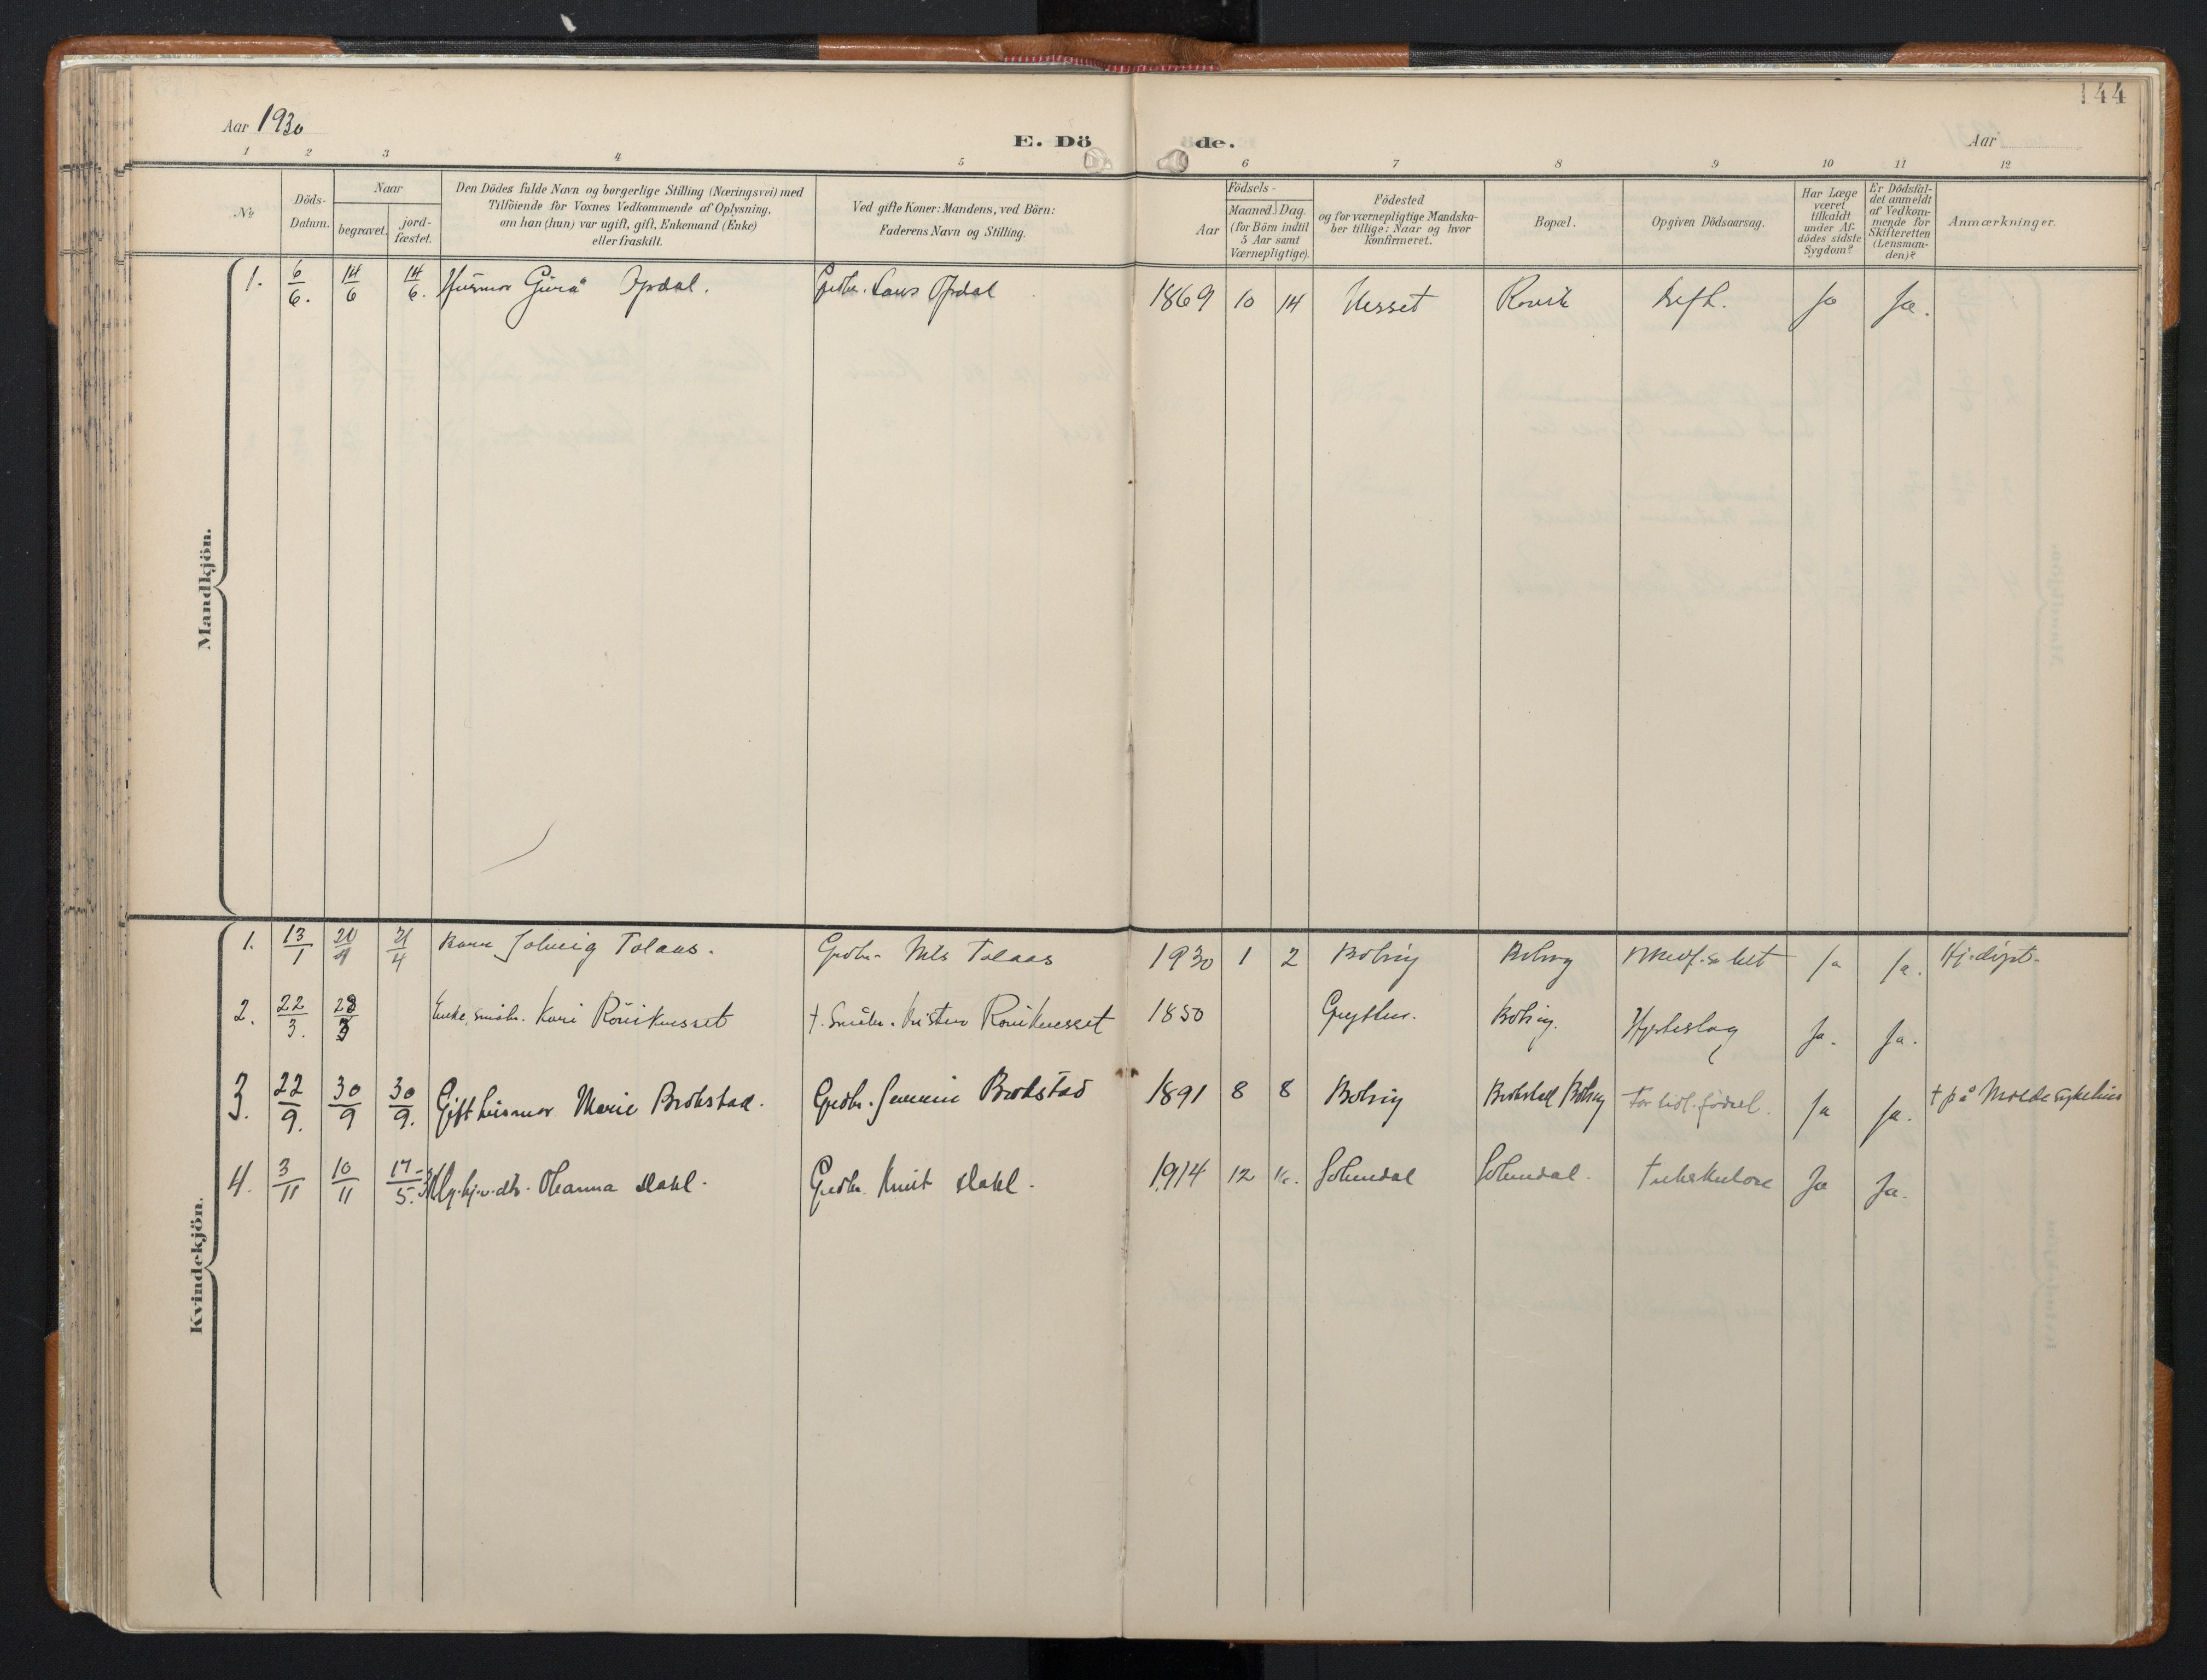 144
Aar 1930
E. Dö de.
Aar
1 2 3 4 5 6 7 8 9 10 11 12
No
Döds-
Datum.
Naar
begravet.
jord-
fæstet.
Den Dödes fulde Navn og borgerlige Stilling (Næringsvei) med
Tilföiende for Voxnes Vedkommende af Oplysning,
om han (hun) var ugift, gift, Enkemand (Enke)
eller fraskilt.
Ved gifte Koner: Mandens, ved Börn:
Faderens Navn og Stilling.
Födsels-
Aar
Maaned. Dag.
(for Börn indtil
5 Aar samt
Værnepligtige).
Födested
og for værnepligtige Mandska-
ber tillige: Naar og hvor
konfirmeret.
Bopæl.
Opgiven Dödsaarsag.
Har Læge
været
tilkaldt
under Af-
dödes sidste
Sygdom?
Er Dödsfal-
det anmeldt
af Vedkom-
mende for
Skifteretten
(Lensman-
den)?
Anmærkninger.
Mandkjön.
1. 6/6. 14/6 14/6. Husmor Opdal. Grdbr. Lars Opdal 1869 10 14 Nesset Rovik Ja Ja.
Kvindekjön.
1. 13/1 21/4 Barn Solveig Tolaas. Grdbr. Nils Tolaas 1930 1 2 Bolsøy Bolsøy Ja Ja. Hj.døpt.
2. 22/3. 28/3 Enke, småbr. Kari Røviknesset †. Småbr. Kristen Røviknesset 1850 Grytten. Bolsøy. Hjerteslag Ja. Ja.
3. 22/9. 30/9 30/9. Gift husmor Marie Brokstad. Grdbr. Brokstad 1891 8 8 Bolsøy Brokstad Bolsøy For tidl. fødsel. Ja Ja. † på Molde sykehus
4. 3/11 10/11 17/5. Dahl. Grdbr. Knut Dahl. 1914 12 Solemdal Solemdal. Tuberkulose Ja Ja.